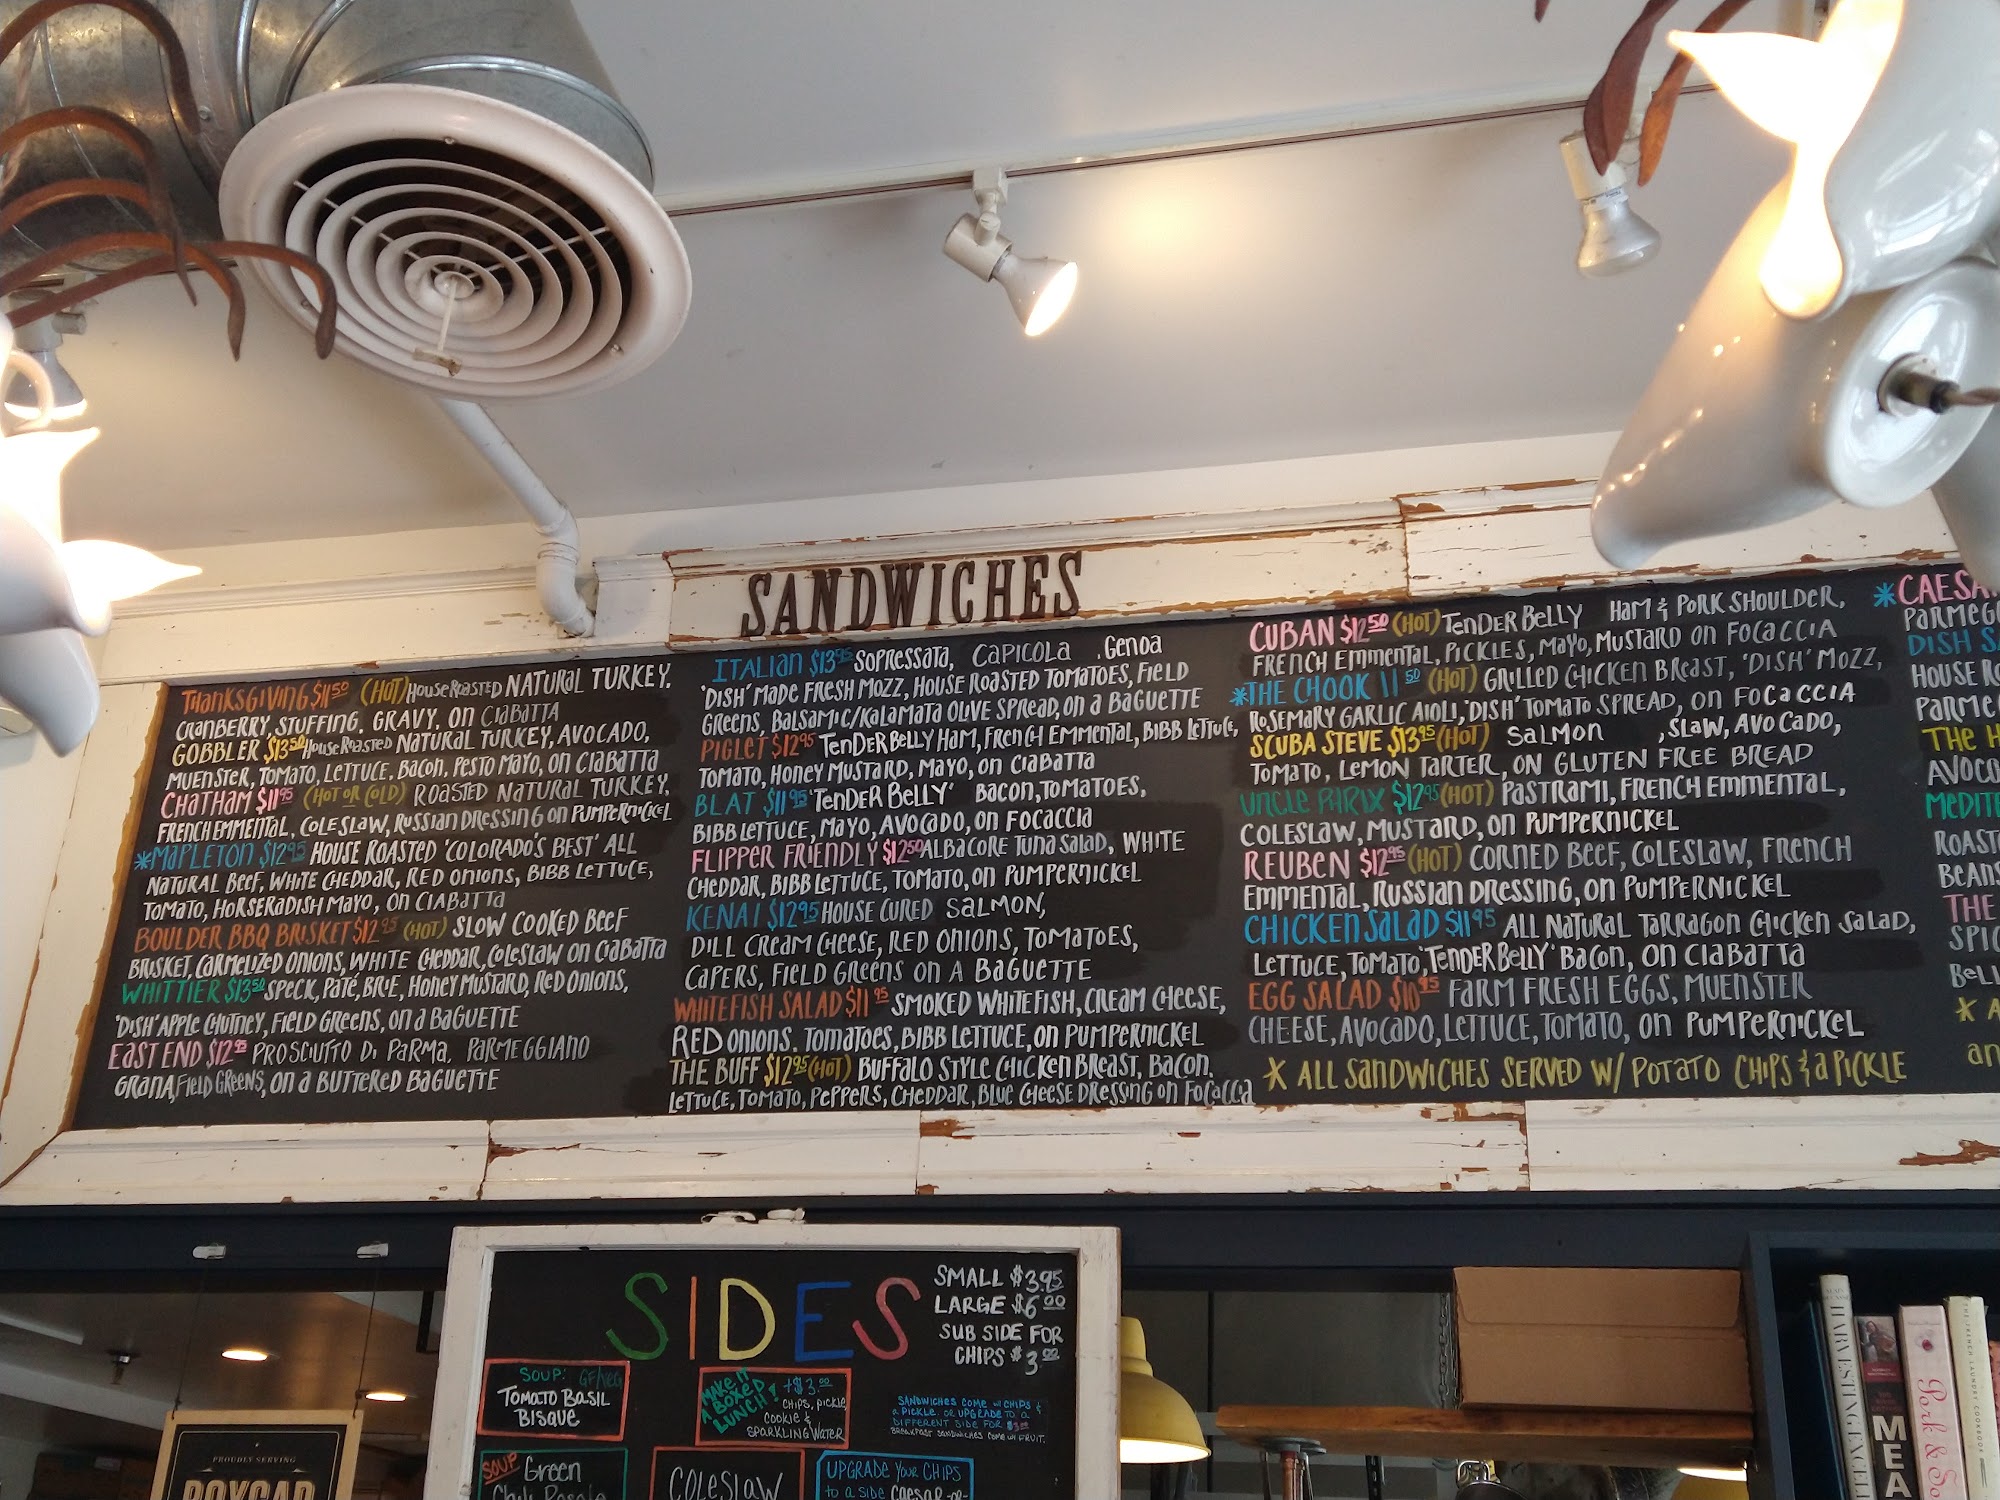 SANDWICHES
THANKSGIVING $11.50 (HOT) HOUSE ROASTED NATURAL TURKEY,
CRANBERRY, STUFFING, GRAVY, ON CIABATTA
GOBBLER $13.50 HOUSE ROASTED NATURAL TURKEY, AVOCADO,
MUENSTER, TOMATO, LETTUCE, BACON, PESTO MAYO, ON CIABATTA
CHATHAM $11.95 (HOT OR COLD) ROASTED NATURAL TURKEY,
FRENCH EMMENTAL, COLESLAW, RUSSIAN DRESSING ON PUMPERNICKEL
*MAPLETON $12.95 HOUSE ROASTED 'COLORADO'S BEST' ALL
NATURAL BEEF, WHITE CHEDDAR, RED ONIONS, BIBB LETTUCE,
TOMATO, HORSERADISH MAYO, ON CIABATTA
BOULDER BBQ BRISKET $12.95 (HOT) SLOW COOKED BEEF
BRISKET, CARMELIZED ONIONS, WHITE CHEDDAR, COLESLAW ON CIABATTA
WHITTIER $13.50 SPECK, PATÉ, BRIE, HONEY MUSTARD, RED ONIONS,
'DISH' APPLE CHUTNEY, FIELD GREENS, ON A BAGUETTE
EAST END $12.95 PROSCIUTTO DI PARMA, PARMEGGIANO
GRANA, FIELD GREENS, ON A BUTTERED BAGUETTE
ITALIAN $13.95 SOPRESSATA, CAPICOLA , GENOA
'DISH' MADE FRESH MOZZ, HOUSE ROASTED TOMATOES, FIELD
GREENS, BALSAMIC/KALAMATA OLIVE SPREAD, ON A BAGUETTE
PIGLET $12.95 TENDERBELLY HAM, FRENCH EMMENTAL, BIBB LETTUCE,
TOMATO, HONEY MUSTARD, MAYO, ON CIABATTA
BLAT $11.95 'TENDER BELLY' BACON, TOMATOES,
BIBB LETTUCE, MAYO, AVOCADO, ON FOCACCIA
FLIPPER FRIENDLY $12.50 ALBACORE TUNA SALAD, WHITE
CHEDDAR, BIBB LETTUCE, TOMATO, ON PUMPERNICKEL
KENAI $12.95 HOUSE CURED SALMON,
DILL CREAM CHEESE, RED ONIONS, TOMATOES,
CAPERS, FIELD GREENS ON A BAGUETTE
WHITEFISH SALAD $11.95 SMOKED WHITEFISH, CREAM CHEESE,
RED ONIONS, TOMATOES, BIBB LETTUCE, ON PUMPERNICKEL
THE BUFF $12.95 (HOT) BUFFALO STYLE CHICKEN BREAST, BACON,
LETTUCE, TOMATO, PEPPERS, CHEDDAR, BLUE CHEESE DRESSING ON FOCACCIA
CUBAN $12.50 (HOT) TENDER BELLY HAM & PORK SHOULDER,
FRENCH EMMENTAL, PICKLES, MAYO, MUSTARD ON FOCACCIA
*THE CHOOK 11.50 (HOT) GRILLED CHICKEN BREAST, 'DISH' MOZZ,
ROSEMARY GARLIC AIOLI, 'DISH' TOMATO SPREAD, ON FOCACCIA
SCUBA STEVE $13.95 (HOT) SALMON , SLAW, AVOCADO,
TOMATO, LEMON TARTER, ON GLUTEN FREE BREAD
UNCLE $12.95 (HOT) PASTRAMI, FRENCH EMMENTAL,
COLESLAW, MUSTARD, ON PUMPERNICKEL
REUBEN $12.95 (HOT) CORNED BEEF, COLESLAW, FRENCH
EMMENTAL, RUSSIAN DRESSING, ON PUMPERNICKEL
CHICKEN SALAD $11.95 ALL NATURAL TARRAGON CHICKEN SALAD,
LETTUCE, TOMATO, 'TENDER BELLY' BACON, ON CIABATTA
EGG SALAD $10.95 FARM FRESH EGGS, MUENSTER
CHEESE, AVOCADO, LETTUCE, TOMATO, ON PUMPERNICKEL
* ALL SANDWICHES SERVED W/ POTATO CHIPS & A PICKLE
*CAESA
PARMEG
DISH S
HOUSE RO
PARME
THE H
AVOCA
MEDITE
ROAST
BEANS
THE
SPIC
BELL
* A
an
SIDES
SMALL $3.95
LARGE $6.00
SUB SIDE FOR
CHIPS $3.00
SOUP: GF/VEG
TOMATO BASIL
BISQUE
MAKE IT
A BOXED
LUNCH!
+$3.00
CHIPS, PICKLE
COOKIE &
SPARKLING WATER
SANDWICHES COME W/ CHIPS &
A PICKLE. OR UPGRADE TO A
DIFFERENT SIDE FOR $3.00
BREAKFAST SANDWICHES COME W/ FRUIT.
SOUP
GREEN
COLESLAW
UPGRADE YOUR CHIPS
TO A SIDE CAESAR -OR-
PROUDLY SERVING
BOXCAR
HARVESTING EXCELL
MEA
Pork & So
THE FRENCH LAUNDRY COOKBOOK